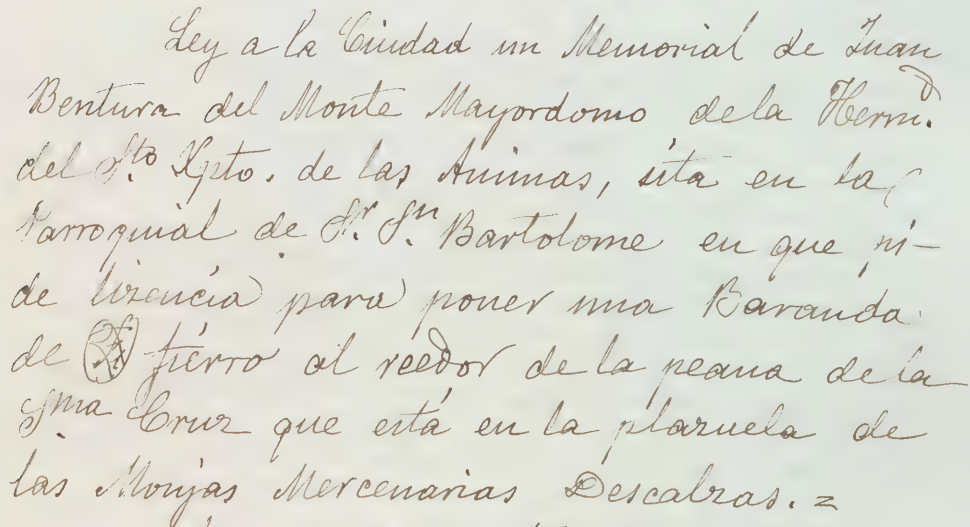 Ley a la Ciudad un Memorial de Juan
Bentura del Monte Mayordomo dela Herm.d
del Sto. Xpto. de las Animas, sita en la
Parroquial de Sr. Sn. Bartolome en que pi-
de lizencia para poner una Baranda
de fierro al reedor de la peana de la
Sma Cruz que está en la plazuela de
las Monjas Mercenarias Descalzas. =